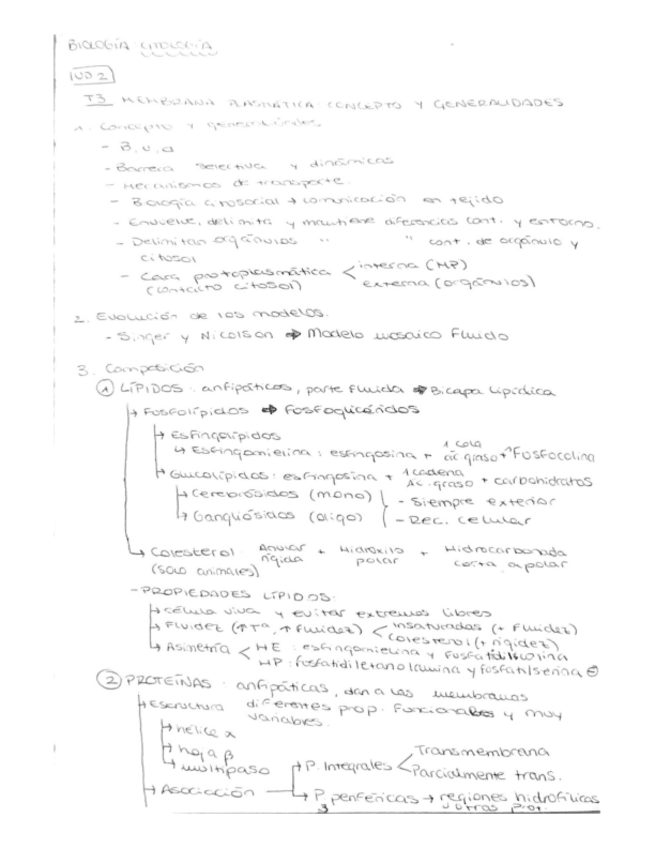 BIOLOGÍA: CITOLOGÍA
UD 2
T3 MEMBRANA PLASMÁTICA: CONCEPTO Y GENERALIDADES
1. Concepto y generalidades
- B, U, a
- Barrera selectiva y dinámicas
- Mecanismos de transporte.
- Biología citosocial → comunicación en tejido
- Envuelve, delimita y mantiene diferencias cont. y entorno.
- Delimitan orgánulos " " cont. de orgánulo y
citosol
- Cara protoplasmática < interna (MP)
(contacto citosol) externa (orgánulos)
2. Evolución de los modelos.
- Singer y Nicolson → Modelo mosaico Fluido
3. Composición
① LÍPIDOS: anfipáticos, parte Fluida → Bicapa Lipídica
↳ Fosfolípidos → Fosfoglicéridos
↳ Esfingolípidos
↳ Esfingomielina: esfingosina + 1 cola ác. graso + Fosfocolina
↳ Glucolípidos: esfingosina + 1 cadena ác. graso + carbohidratos
↳ Cerebrósidos (mono) - Siempre exterior
↳ Gangliósidos (oligo) - Rec. celular
↳ Colesterol: Anular + Hidroxilo + Hidrocarbonada
(solo animales) rígida polar apolar
- PROPIEDADES LÍPIDOS:
↳ célula viva y evitar extremos libres
↳ Fluidez (↑Tª, ↑Fluidez) < insaturadas (+ Fluidez)
colesterol (+ rigidez)
↳ Asimetría < HE: esfingomielina y fosfatidilcolina
HP: fosfatidiletanolamina y fosfatilserina ⊖
② PROTEÍNAS: anfipáticas, dan a las membranas
↳ Estructura diferentes prop. Funcionales y muy
variables.
↳ hélice α
↳ hoja β
↳ multipaso
↳ Asociación → P. Integrales < Transmembrana
Parcialmente trans.
↳ P. periféricas → regiones hidrofílicas
u otras prot.
3